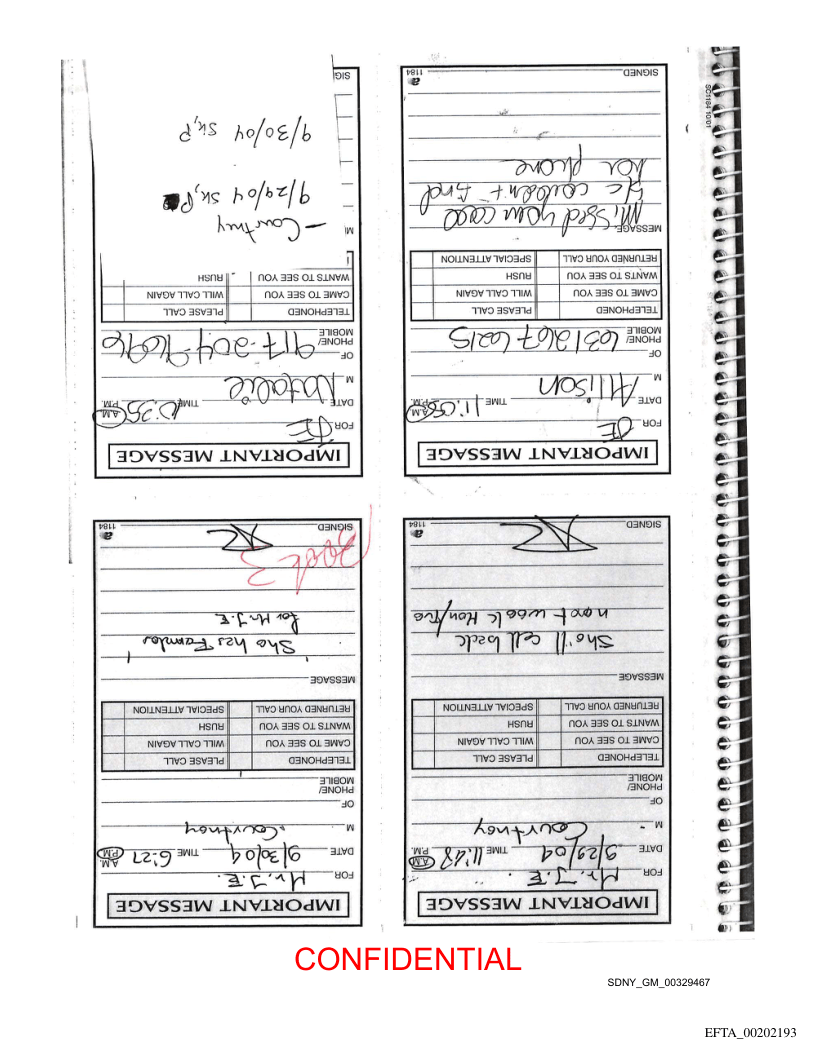 IMPORTANT MESSAGE
FOR Mr. J.E.
DATE 9/29/04 TIME 11:48 A.M. P.M.
M Courtney
OF
PHONE/
MOBILE
TELEPHONED PLEASE CALL
CAME TO SEE YOU WILL CALL AGAIN
WANTS TO SEE YOU RUSH
RETURNED YOUR CALL SPECIAL ATTENTION
MESSAGE
She'll call back
next week Mon/Tue
SIGNED
a 1184
IMPORTANT MESSAGE
FOR Mr. J.E.
DATE 9/30/04 TIME 6:27 A.M. P.M.
M Courtney
OF
PHONE/
MOBILE
TELEPHONED PLEASE CALL
CAME TO SEE YOU WILL CALL AGAIN
WANTS TO SEE YOU RUSH
RETURNED YOUR CALL SPECIAL ATTENTION
MESSAGE
She has
for Mr. J.E.
SIGNED
a 1184
Book 3
IMPORTANT MESSAGE
FOR JE
DATE TIME 11:05 A.M. P.M.
M Allison
OF
PHONE/
MOBILE 631 267 6215
TELEPHONED PLEASE CALL
CAME TO SEE YOU WILL CALL AGAIN
WANTS TO SEE YOU RUSH
RETURNED YOUR CALL SPECIAL ATTENTION
MESSAGE Missed your call
couldn't find
her phone
SIGNED
a 1184
SC1184 10/01
IMPORTANT MESSAGE
FOR JE
DATE TIME 10:35 A.M. P.M.
M Natalie
OF
PHONE/
MOBILE 917-204-9696
TELEPHONED PLEASE CALL
CAME TO SEE YOU WILL CALL AGAIN
WANTS TO SEE YOU RUSH
— Courtney
9/29/04
9/30/04
SIG
CONFIDENTIAL
SDNY_GM_00329467
EFTA_00202193